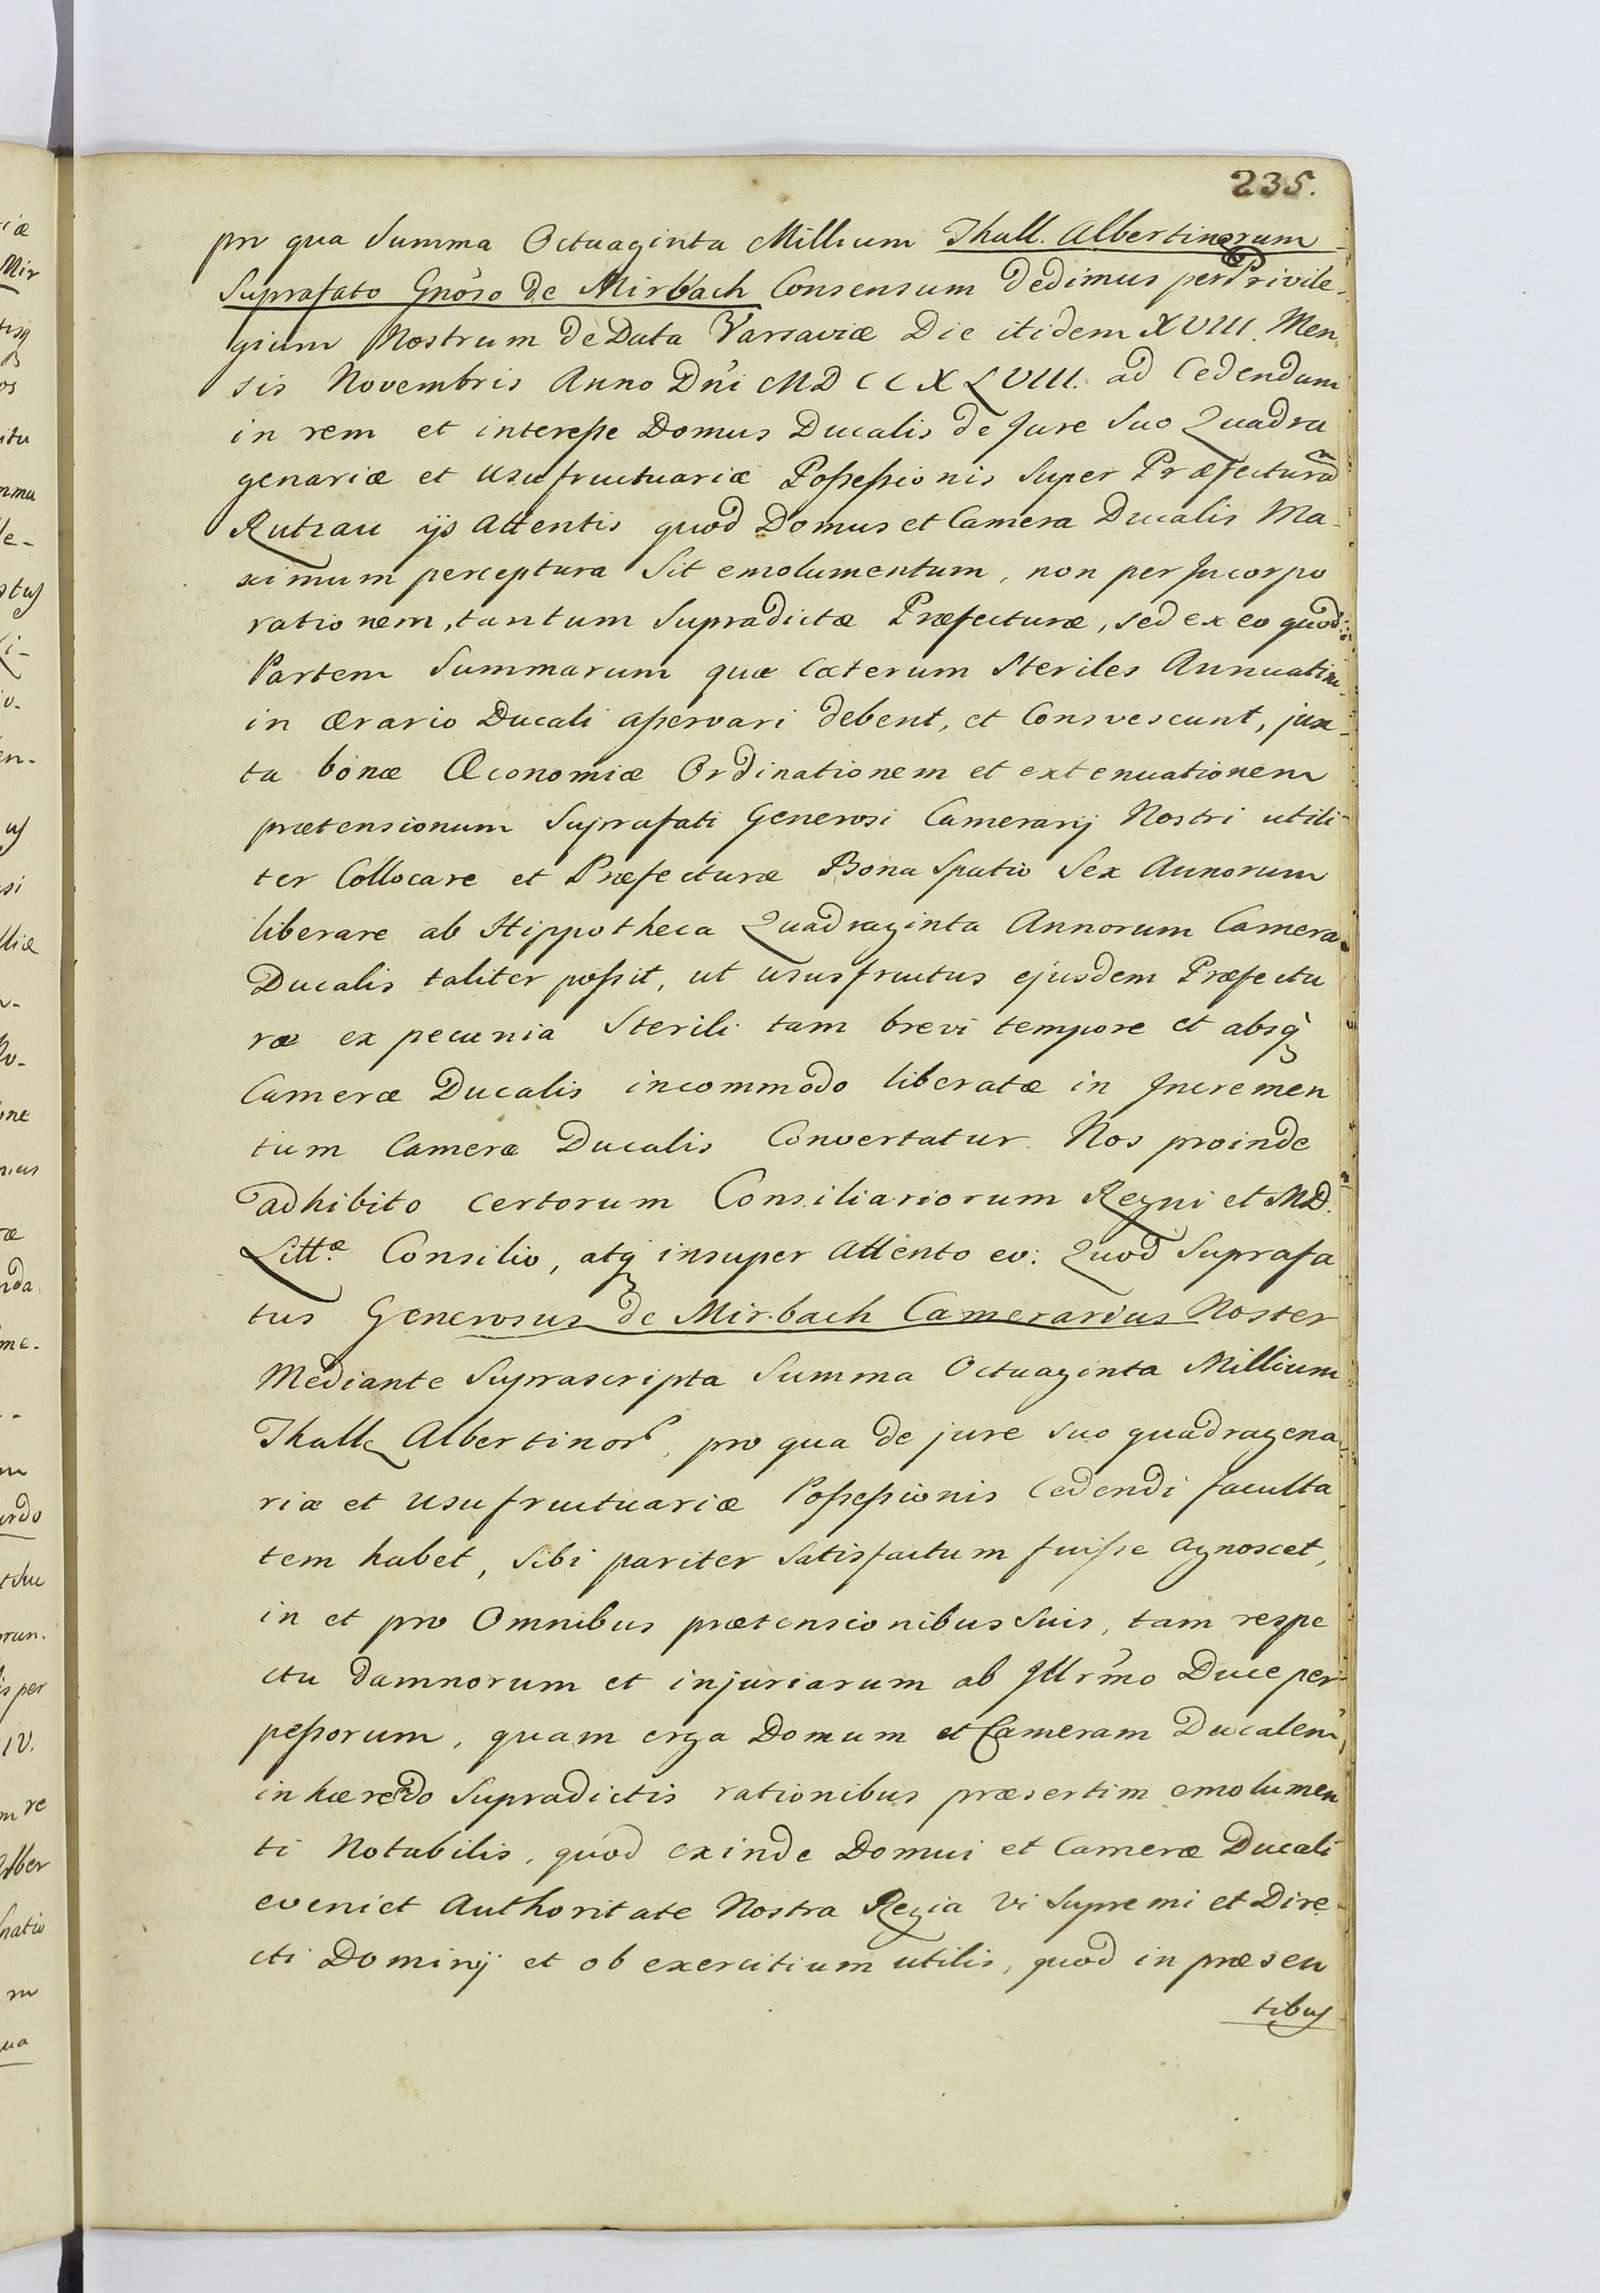 235.
pro qua Summa Octuaginta Millium Thall. Albertinorum
Suprafato Gnoso de Mirbach Consensum dedimus per Privile-
gium Nostrum de Data Varsaviæ Die itidem XVIII. Men
sis Novembris Anno Dni MDCCXLVIII. ad Cedendum
in rem et interesse Domus Ducalis de Jure Suo Quadra
genariæ et usufructuariæ Possessionis Super Præfectura
Rutzau ijs Attentis quod Domus et Camera Ducalis Ma-
ximum perceptura Sit emolumentum, non per Incorpo
rationem, tantum Supradictæ Præfecturæ, sed ex eo quod
Partem Summarum quæ Cæterum Steriles Annuatim
in Ærario Ducali asservari debent, et Consvescunt, jux-
ta bonæ Œconomiæ Ordinationem et extenuationem
prætensionum Suprafati Generosi Camerarij Nostri utili-
ter Collocare et Præfecturæ Bona Spatio Sex Annorum
liberare ab Hippotheca Quadraginta Annorum Camera
Ducalis taliter possit, ut ususfructus ejusdem Præfectu
ræ ex pecunia Sterili tam brevi tempore et absq
Cameræ Ducalis incommodo liberatæ in Incremen
tum Cameræ Ducalis Convertatur. Nos proinde
adhibito certorum Consiliariorum Regni et MD.
Littæ Consilio, atq insuper Attento eo: Quod Suprafa
tus Generosus de Mirbach Camerarius Noster
Mediante Suprascripta Summa Octuaginta Millium
Thall Albertinor, pro qua de jure suo quadragena
riæ et usufructuariæ Possessionis Cedendi faculta
tem habet, Sibi pariter Satisfactum fuisse agnoscet,
in et pro Omnibus prætensionibus Suis, tam respe
ctu damnorum et injuriarum ab Illrmo Duce per-
pessorum, quam erga Domum et Cameram Ducalem,
inhærendo Supradictis rationibus præsertim emolumen
ti Notabilis, quod exinde Domui et Cameræ Ducali
eveniet Authoritate Nostra Regia vi Supremi et Dire-
cti Dominij et ob exercitium utilis, quod in præsen
tibus